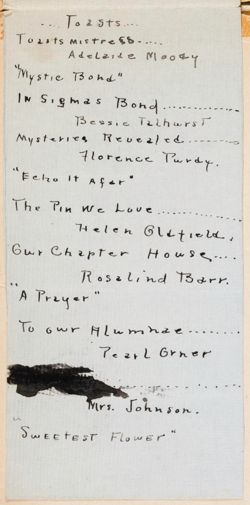 ... Toasts ...
Toastsmistress.....
Adelaide Moody
"Mystic Bond"
In Sigmas Bond..............
Bessie Talhurst
Mysteries Revealed.........
Florence Purdy.
"Echo It Afar"
The Pin We Love..............
Helen Oldfield.
Our Chapter House....
Rosalind Barr.
"A Prayer"
To our Alumnae........
Pearl Orner
..............
Mrs. Johnson.
"Sweetest Flower"